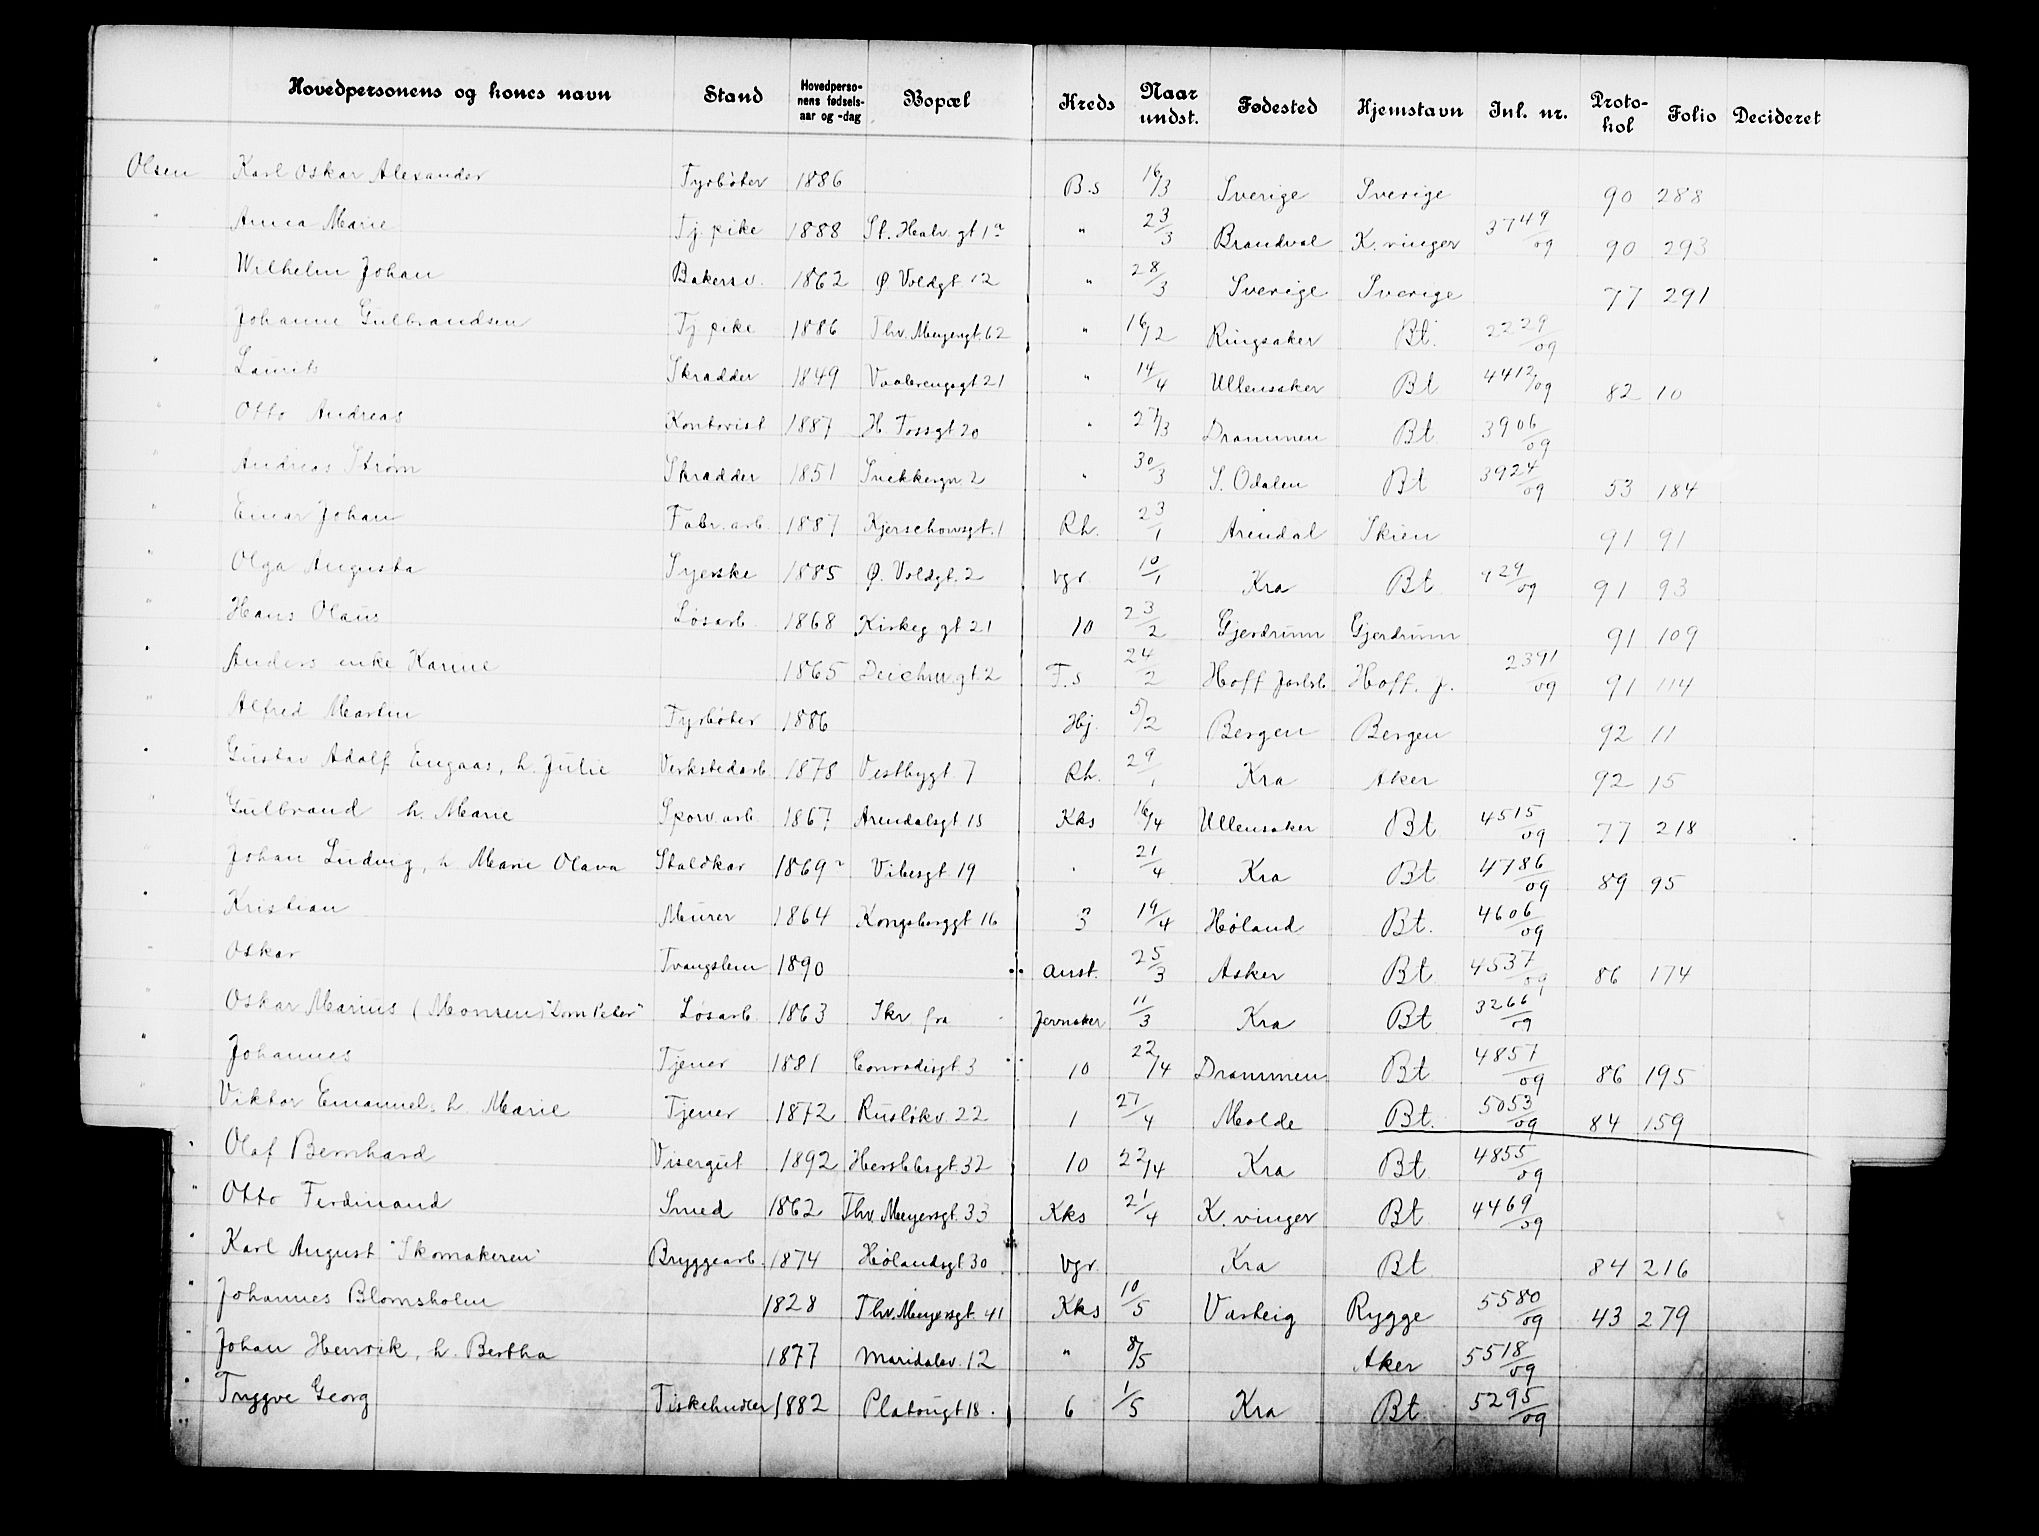 Hovedpersonens og kones navn Stand Hovedperso-nens fødsels-aar og -dag Bopæl Kreds Naar undst. Fødested Hjemstavn Inl. nr. Proto-kol Folio Decideret
Olsen Karl Oskar Alexander Fyrbøter 1886 B.s 16/3 Sverige Sverige 90 288
" Anna Marie Tj. pike 1888 St. Halv. gt 1a " 23/3 Brandval K. vinger 3749/09 90 293
" Wilhelm Johan Bakersv. 1862 Ø Voldgt. 12 " 28/3 Sverige Sverige 77 291
" Johanne Gulbrandsen Tj. pike 1886 Thv. Meyersgt. 62 " 16/2 Ringsaker Bt. 2229/09
" Laurits Skrædder 1849 Vaalerengagt 21 " 14/4 Ullensaker Bt 4412/09 82 10
" Otto Andreas Kontorist 1887 H. Tossgt 20 " 27/3 Drammen Bt 3906/09
" Andreas Strøm Skrædder 1851 Snekkergn 2 " 30/3 S. Odalen Bt 3924/09 53 184
" Einar Johan Fabr. arb. 1887 Kjerschowsgt. 1 Rh. 23/1 Arendal Skien 91 91
" Olga Augusta Syerske 1885 Ø. Voldgt. 2 Vgr. 10/1 Kra Bt 424/09 91 93
" Hans Olaus Løsarb. 1868 Kirkeg gt 21 10 23/2 Gjerdrum Gjerdrum 91 109
" Anders enke Karine 1865 Deichm. gt. 2 F.s 24/2 Hoff Jarlsb. Hoff. J. 2391/09 91 114
" Alfred Martin Fyrbøter 1886 Hj. 5/2 Bergen Bergen 92 11
" Gustav Adolf Engaas, h. Julie Verkstedarb. 1878 Vestbygt. 7 Rh. 29/1 Kra Aker 92 15
" Gulbrand h. Marie Sporv. arb. 1867 Arendalsgt 15 Kks 16/4 Ullensaker Bt 4515/09 77 218
" Johan Ludvig, h. Marie Olava Staldkar 1869 Vibesgt. 19 " 21/4 Kra Bt 4786/09 89 95
" Kristian Murer 1864 Kongsberggt 16 3 19/4 Høland Bt. 4606/09
" Oskar Tvangslem 1890 Anst. 25/3 Asker Bt 4537/09 86 174
" Oskar Marius (Monsen) "Lom Peter" Løsarb. 1863 Skr fra Jevnaker 11/3 Kra Bt 3266/09
" Johannes Tjener 1881 Conradisgt. 3 10 22/4 Drammen Bt 4857/09 86 195
" Viktor Emanuel, h. Marie Tjener 1872 Rusløkv. 22 1 27/4 Molde Bt. 5053/09 84 159
" Olaf Bernhard Visergut 1892 Herslebsgt. 32 10 22/4 Kra Bt. 4855/09
" Otto Ferdinand Smed 1862 Thv. Meyersgt. 33 Kks 21/4 K. vinger Bt. 4469/09
" Karl August "Skomakeren" Bryggearb. 1874 Hølandsgt 30 Vgr. Kra Bt 84 216
" Johannes Blomsholm 1828 Thv. Meyersgt. 41 Kks 10/5 Varteig Rygge 5580/09 43 279
" Johan Henrik, h. Bertha 1877 Maridalsv. 12 " 8/5 Aker 5518/09
" Trygve Georg Fiskehndler 1882 Platougt 18. 6 1/5 Kra Bt. 5295/09
"